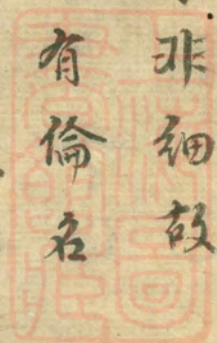 非細故
有倫名